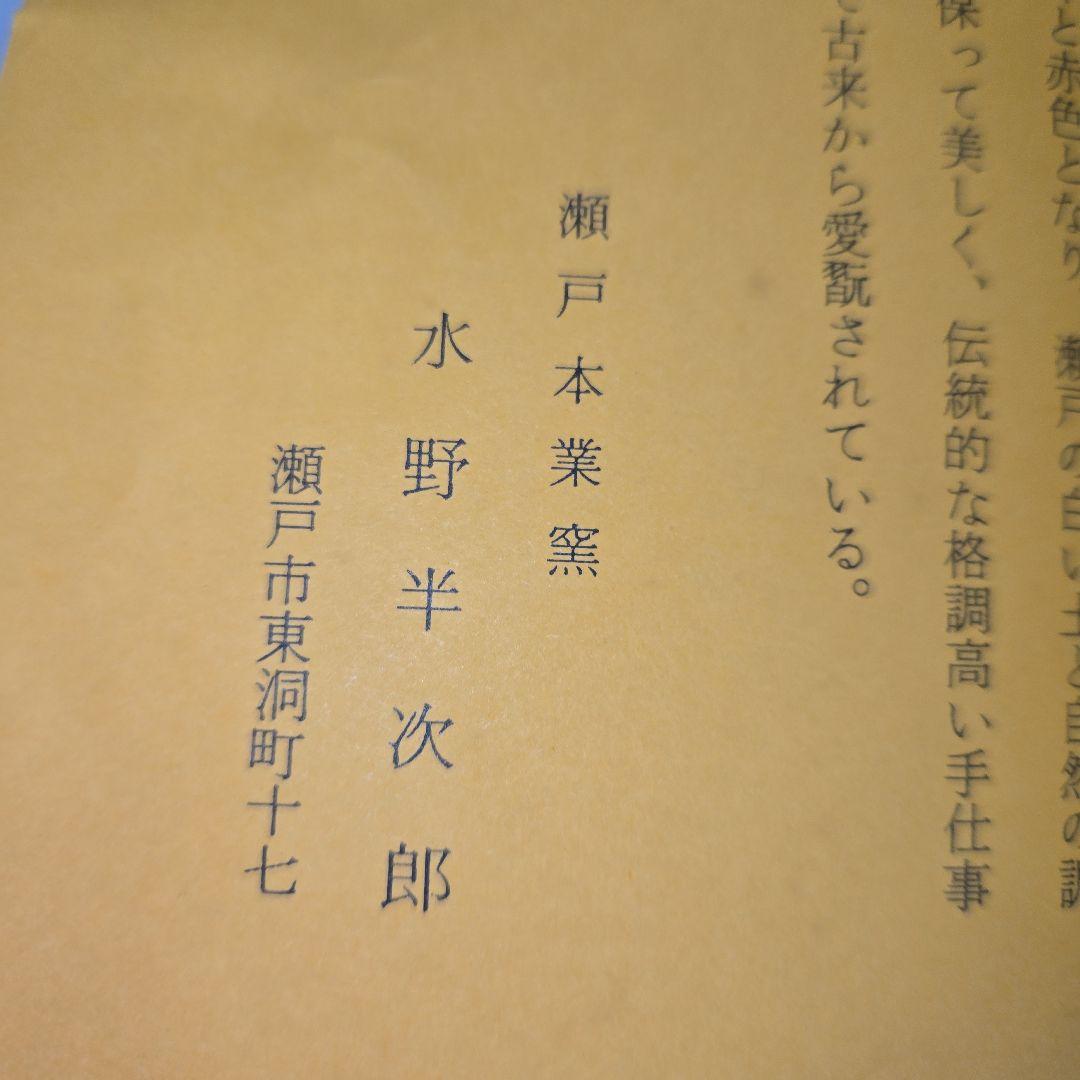 と赤色となり 瀬戸の白い土と自然の調
保って美しく、伝統的な格調高い手仕事
古来から愛翫されている。
瀬戸本業窯
水野半次郎
瀬戸市東洞町十七